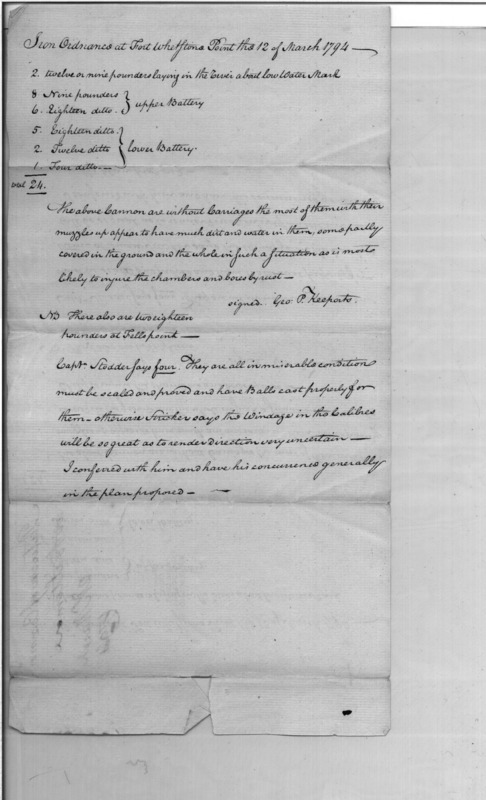 Iron Ordnance at Fort Whetstone Point this 12 of March 1794 —
2. twelve or nine pounders laying in the River about low Water Mark
8 Nine pounders
6. Eighteen ditto. } upper Battery
5. Eighteen ditto.
2. Twelve ditto } lower Battery.
1. Four ditto. —
total 24.
The above Cannon are without Carriages the most of them with their
muzzles up appear to have much dirt and water in them, some partly
covered in the ground and the whole in such a situation as is most
likely to injure the chambers and bores by rust —
signed. Geo P. Keeports.
NB There also are two eighteen
pounders at Fells point —
Capt. Stodder says four. They are all in miserable condition
must be scaled and proved and have Balls cast properly for
them — otherwise Stricker says the Windage in the Calibres
will be so great as to render direction very uncertain —
I conferred with him and have his concurrence generally
in the plan proposed —